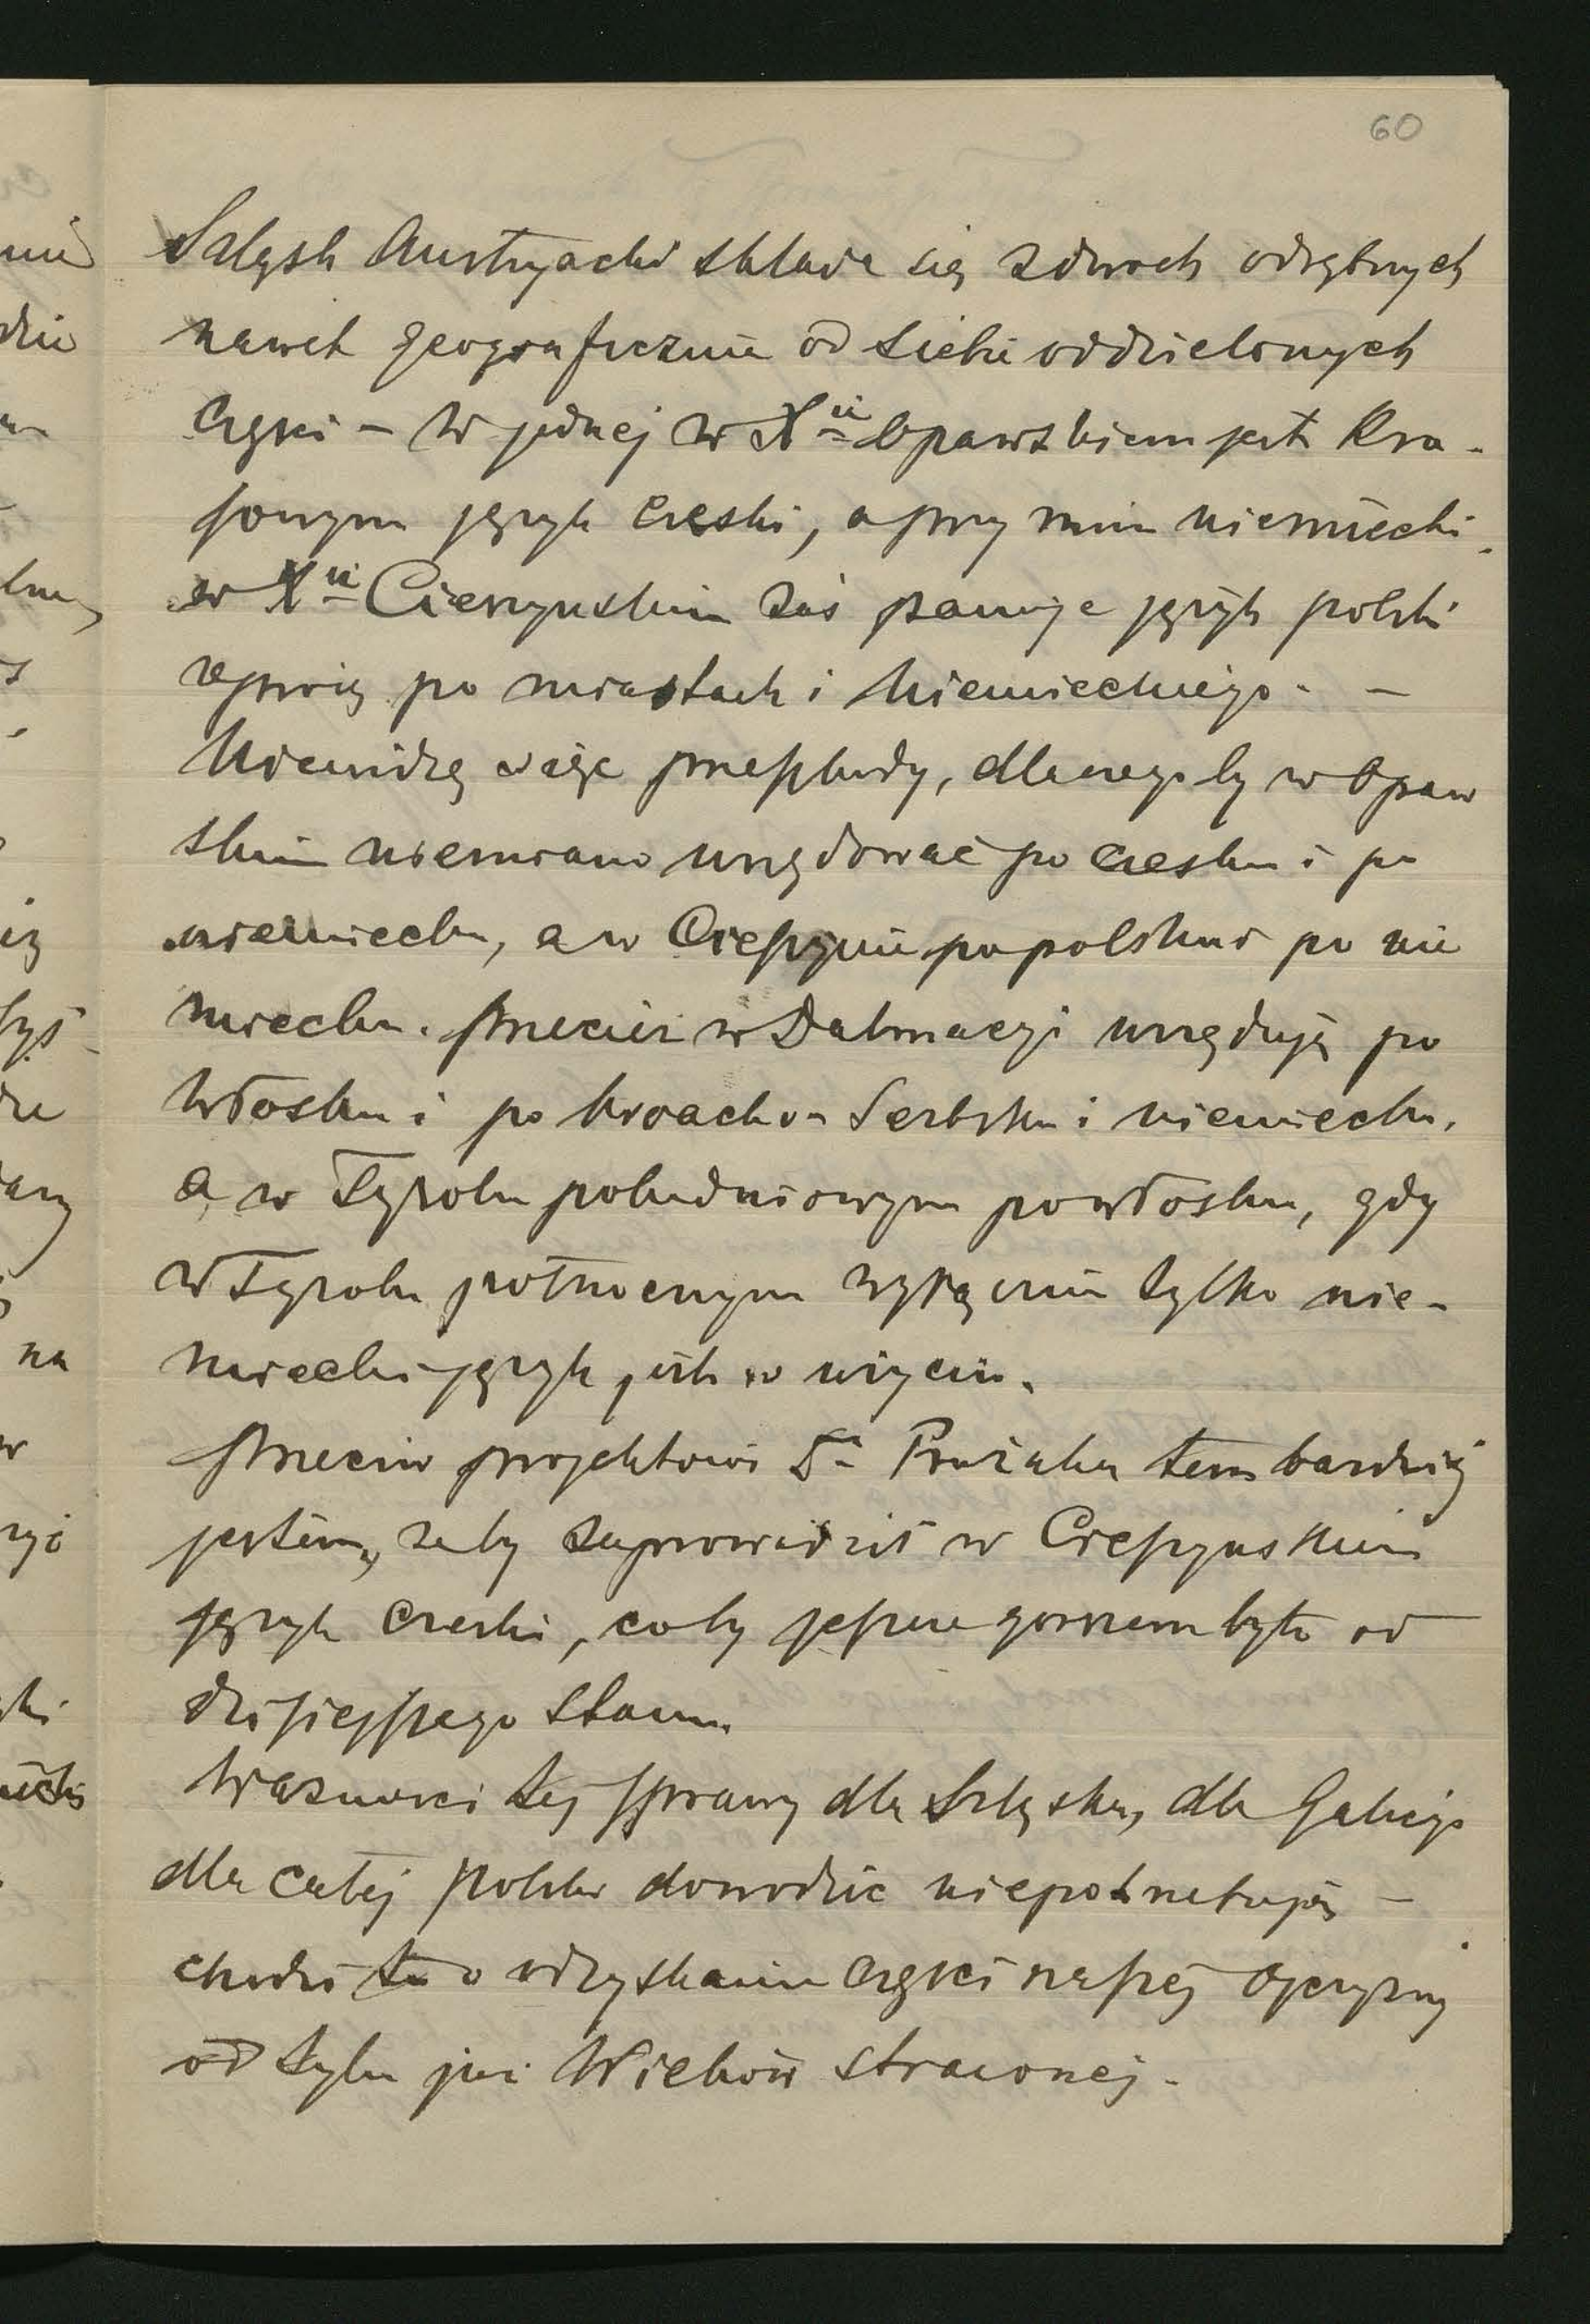 60
Szląsk Austryacki składa się z dwóch odrębnych
nawet geograficznie od siebie oddzielonych
części – w jednej w Xii Opawskiem jest kra-
jowym język czeski, a przy nim niemiecki,
w Xii Cieszyńskim zaś panuje język polski
oprócz po miastach i niemieckiego. –
Nie widzę więc przeszkody, dlaczegoby w Opaw
skim nie miano urzędować po czesku i po
niemiecku, a w Cieszynie po polsku i po nie
miecku. Przecież w Dalmacyi urzędują po
włosku i po kroacko-serbsku i niemiecku,
a w Tyrolu południowym po włosku, gdy
w Tyrolu północnym wyłącznie tylko nie-
miecki język jest w użyciu.
Przeciw projektowi Dr Pražaka tem bardziej
jestem, żeby zaprowadzić w Cieszyńskim
język czeski, coby jeszcze gorszem było od
dzisiejszego stanu.
Ważności tej sprawy dla Szląska, dla Galicyi
dla całej Polski dowodzić nie potrzebuję –
chodzi tu o odzyskanie części naszej ojczyzny
od tylu już wieków straconej.